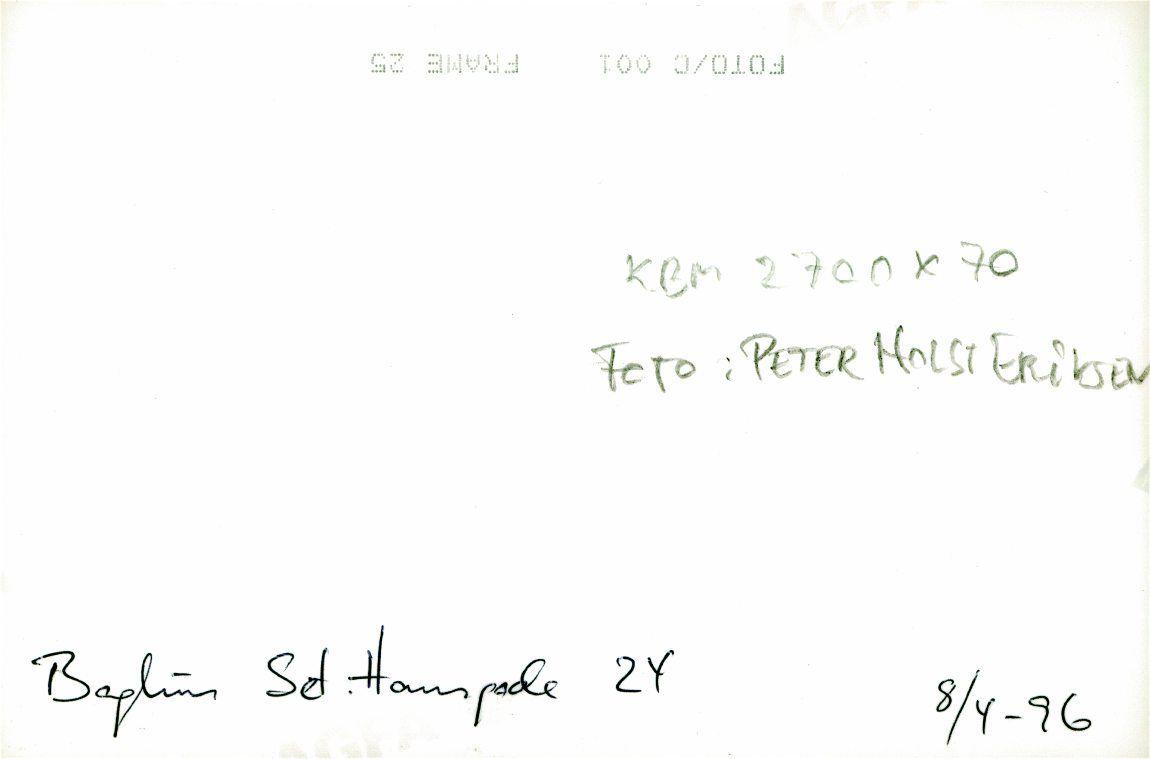 FOTO/C 001 FRAME 25
KBM 2700 x 70
FOTO : PETER HOLST ERIKSEN
Baghus Sct. Hansgade 24
8/4-96